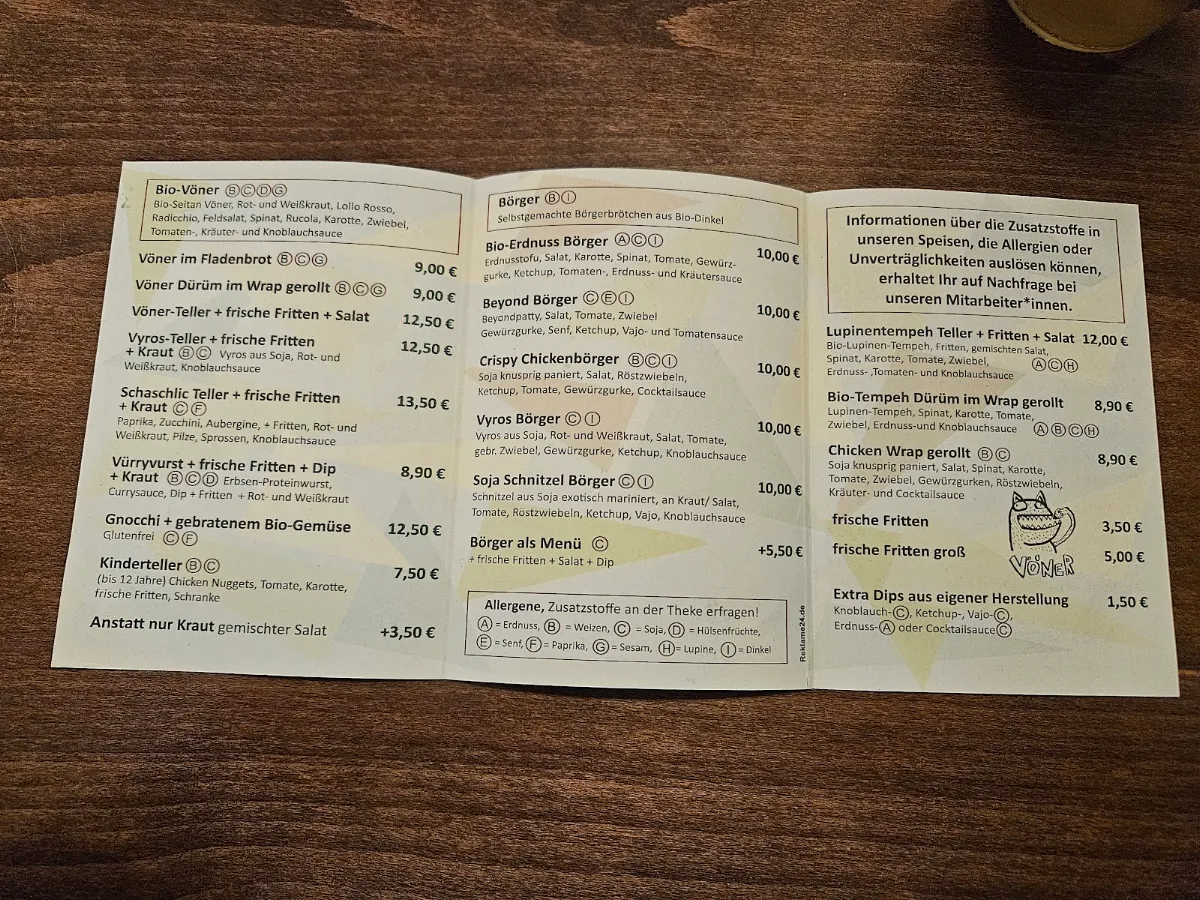 Bio-Vöner Ⓑ Ⓒ Ⓓ Ⓖ
Bio-Seitan Vöner, Rot- und Weißkraut, Lollo Rosso,
Radicchio, Feldsalat, Spinat, Rucola, Karotte, Zwiebel,
Tomaten-, Kräuter- und Knoblauchsauce
Vöner im Fladenbrot Ⓑ Ⓒ Ⓖ 9,00 €
Vöner Dürüm im Wrap gerollt Ⓑ Ⓒ Ⓖ 9,00 €
Vöner-Teller + frische Fritten + Salat 12,50 €
Vyros-Teller + frische Fritten 12,50 €
+ Kraut Ⓑ Ⓒ Vyros aus Soja, Rot- und
Weißkraut, Knoblauchsauce
Schaschlic Teller + frische Fritten 13,50 €
+ Kraut Ⓒ Ⓕ
Paprika, Zucchini, Aubergine, + Fritten, Rot- und
Weißkraut, Pilze, Sprossen, Knoblauchsauce
Vürryvurst + frische Fritten + Dip 8,90 €
+ Kraut Ⓑ Ⓒ Ⓓ Erbsen-Proteinwurst,
Currysauce, Dip + Fritten + Rot- und Weißkraut
Gnocchi + gebratenem Bio-Gemüse 12,50 €
Glutenfrei Ⓒ Ⓕ
Kinderteller Ⓑ Ⓒ 7,50 €
(bis 12 Jahre) Chicken Nuggets, Tomate, Karotte,
frische Fritten, Schranke
Anstatt nur Kraut gemischter Salat +3,50 €
Börger Ⓑ Ⓘ
Selbstgemachte Börgerbrötchen aus Bio-Dinkel
Bio-Erdnuss Börger Ⓐ Ⓒ Ⓘ 10,00 €
Erdnusstofu, Salat, Karotte, Spinat, Tomate, Gewürz-
gurke, Ketchup, Tomaten-, Erdnuss- und Kräutersauce
Beyond Börger Ⓒ Ⓔ Ⓘ 10,00 €
Beyondpatty, Salat, Tomate, Zwiebel
Gewürzgurke, Senf, Ketchup, Vajo- und Tomatensauce
Crispy Chickenbörger Ⓑ Ⓒ Ⓘ 10,00 €
Soja knusprig paniert, Salat, Röstzwiebeln,
Ketchup, Tomate, Gewürzgurke, Cocktailsauce
Vyros Börger Ⓒ Ⓘ 10,00 €
Vyros aus Soja, Rot- und Weißkraut, Salat, Tomate,
gebr. Zwiebel, Gewürzgurke, Ketchup, Knoblauchsauce
Soja Schnitzel Börger Ⓒ Ⓘ 10,00 €
Schnitzel aus Soja exotisch mariniert, an Kraut/ Salat,
Tomate, Röstzwiebeln, Ketchup, Vajo, Knoblauchsauce
Börger als Menü Ⓒ +5,50 €
+ frische Fritten + Salat + Dip
Allergene, Zusatzstoffe an der Theke erfragen!
Ⓐ = Erdnuss, Ⓑ = Weizen, Ⓒ = Soja, Ⓓ = Hülsenfrüchte,
Ⓔ = Senf, Ⓕ = Paprika, Ⓖ = Sesam, Ⓗ = Lupine, Ⓘ = Dinkel
Reklame24.de
Informationen über die Zusatzstoffe in
unseren Speisen, die Allergien oder
Unverträglichkeiten auslösen können,
erhaltet Ihr auf Nachfrage bei
unseren Mitarbeiter*innen.
Lupinentempeh Teller + Fritten + Salat 12,00 €
Bio-Lupinen-Tempeh, Fritten, gemischten Salat,
Spinat, Karotte, Tomate, Zwiebel,
Erdnuss- ,Tomaten- und Knoblauchsauce Ⓐ Ⓒ Ⓗ
Bio-Tempeh Dürüm im Wrap gerollt 8,90 €
Lupinen-Tempeh, Spinat, Karotte, Tomate,
Zwiebel, Erdnuss-und Knoblauchsauce Ⓐ Ⓑ Ⓒ Ⓗ
Chicken Wrap gerollt Ⓑ Ⓒ 8,90 €
Soja knusprig paniert, Salat, Spinat, Karotte,
Tomate, Zwiebel, Gewürzgurken, Röstzwiebeln,
Kräuter- und Cocktailsauce
frische Fritten 3,50 €
frische Fritten groß 5,00 €
VÖNER
Extra Dips aus eigener Herstellung 1,50 €
Knoblauch-Ⓒ, Ketchup-, Vajo-Ⓒ,
Erdnuss-Ⓐ oder CocktailsauceⒸ